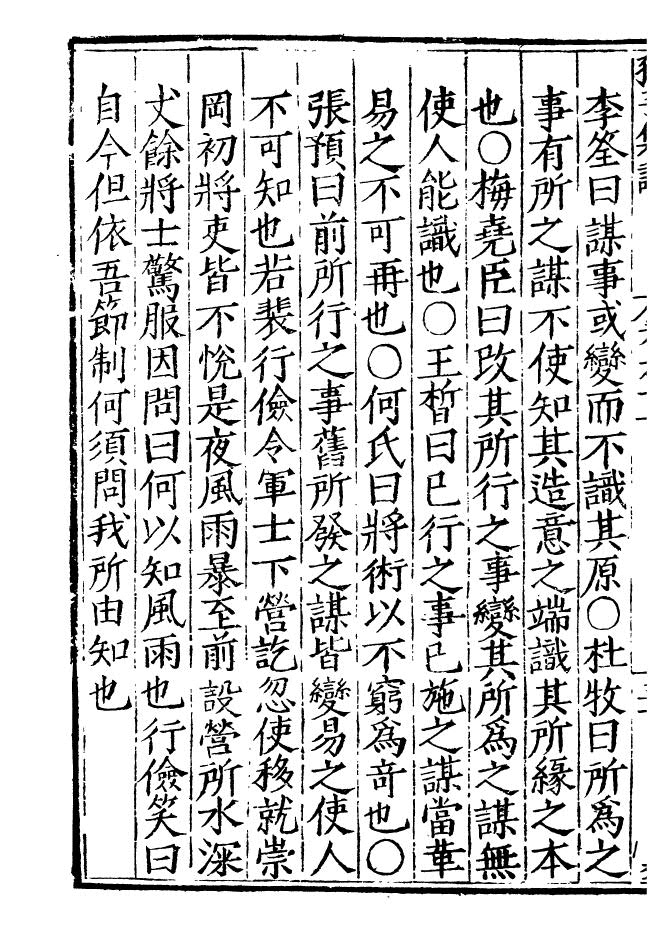 李筌曰謀事或變而不識其原○杜牧曰所為之
事有所之謀不使知其造意之端識其所緣之本
也○梅堯臣曰改其所行之事變其所為之謀無
使人能識也○王晳曰已行之事已施之謀當革
易之不可再也○何氏曰將術以不窮為竒也○
張預曰前所行之事舊所發之謀皆變易之使人
不可知也若裴行儉令軍士下營訖忽使移就崇
岡初將吏皆不恱是夜風雨暴至前設營所水深
丈餘將士驚服因問曰何以知風雨也行儉笑曰
自今但依吾節制何須問我所由知也